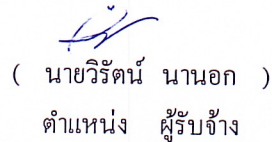 ( นายวิรัตน์ นานอก )
ตำแหน่ง ผู้รับจ้าง